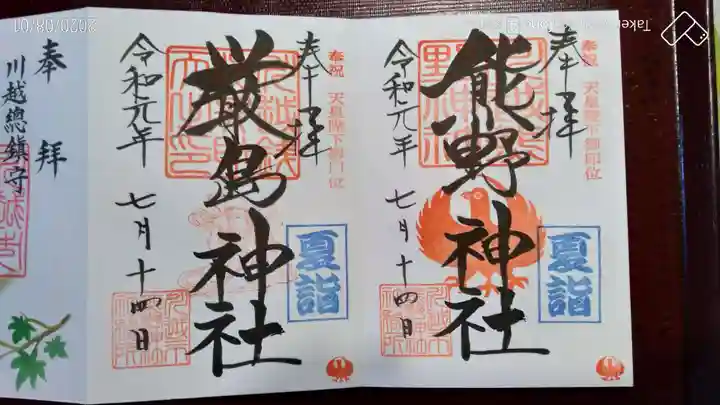 奉拝
奉祝 天皇陛下御即位
熊野神社
夏詣
令和元年 七月十四日
奉拝
奉祝 天皇陛下御即位
厳島神社
夏詣
令和元年 七月十四日
奉拝
川越總鎮守
2020/08/01